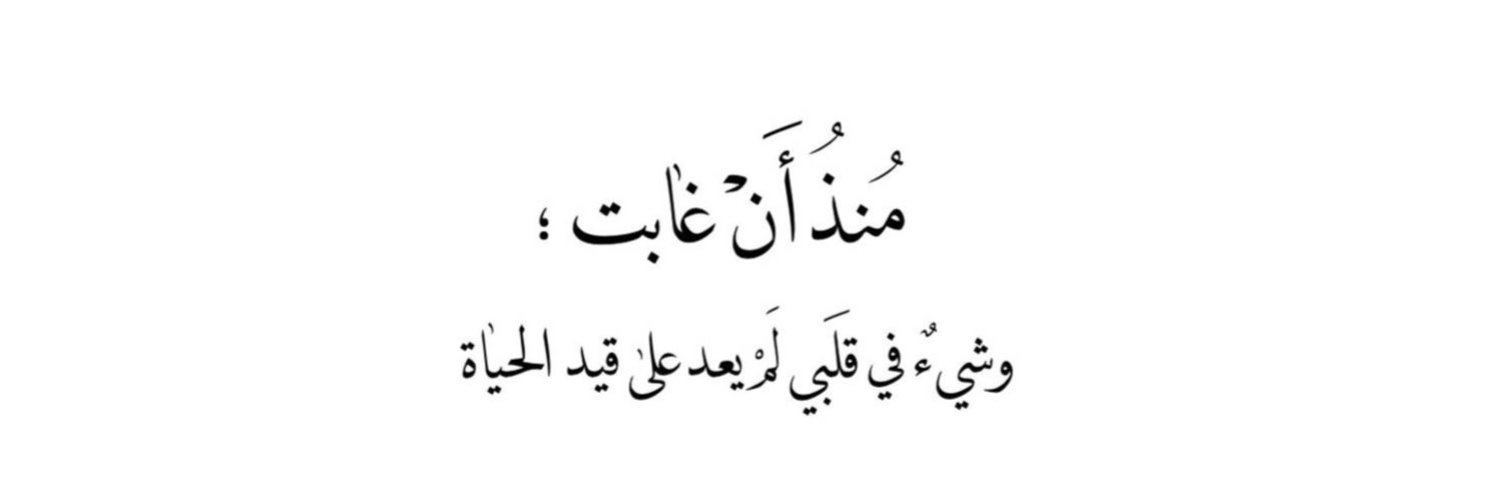 مُنذُ أَنْ غٰابت ؛
وشيءٌ في قلَبي لَمْ يعد علىٰ قيد الحيٰاة